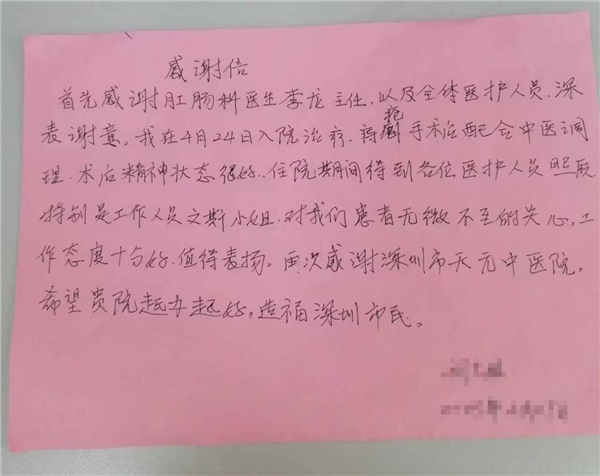 感谢信
首先感谢肛肠科医生李龙主任，以及全体医护人员，深
表谢意。我在4月24日入院治疗，痔疮手术后配合中医调
理.术后精神状态很好.住院期间得到各位医护人员照顾
特别是工作人员文斯小姐.对我们患者无微不至的关心，工
作态度十分好.值得表扬。再次感谢深圳市天元中医院。
希望贵院越办越好，造福深圳市民。